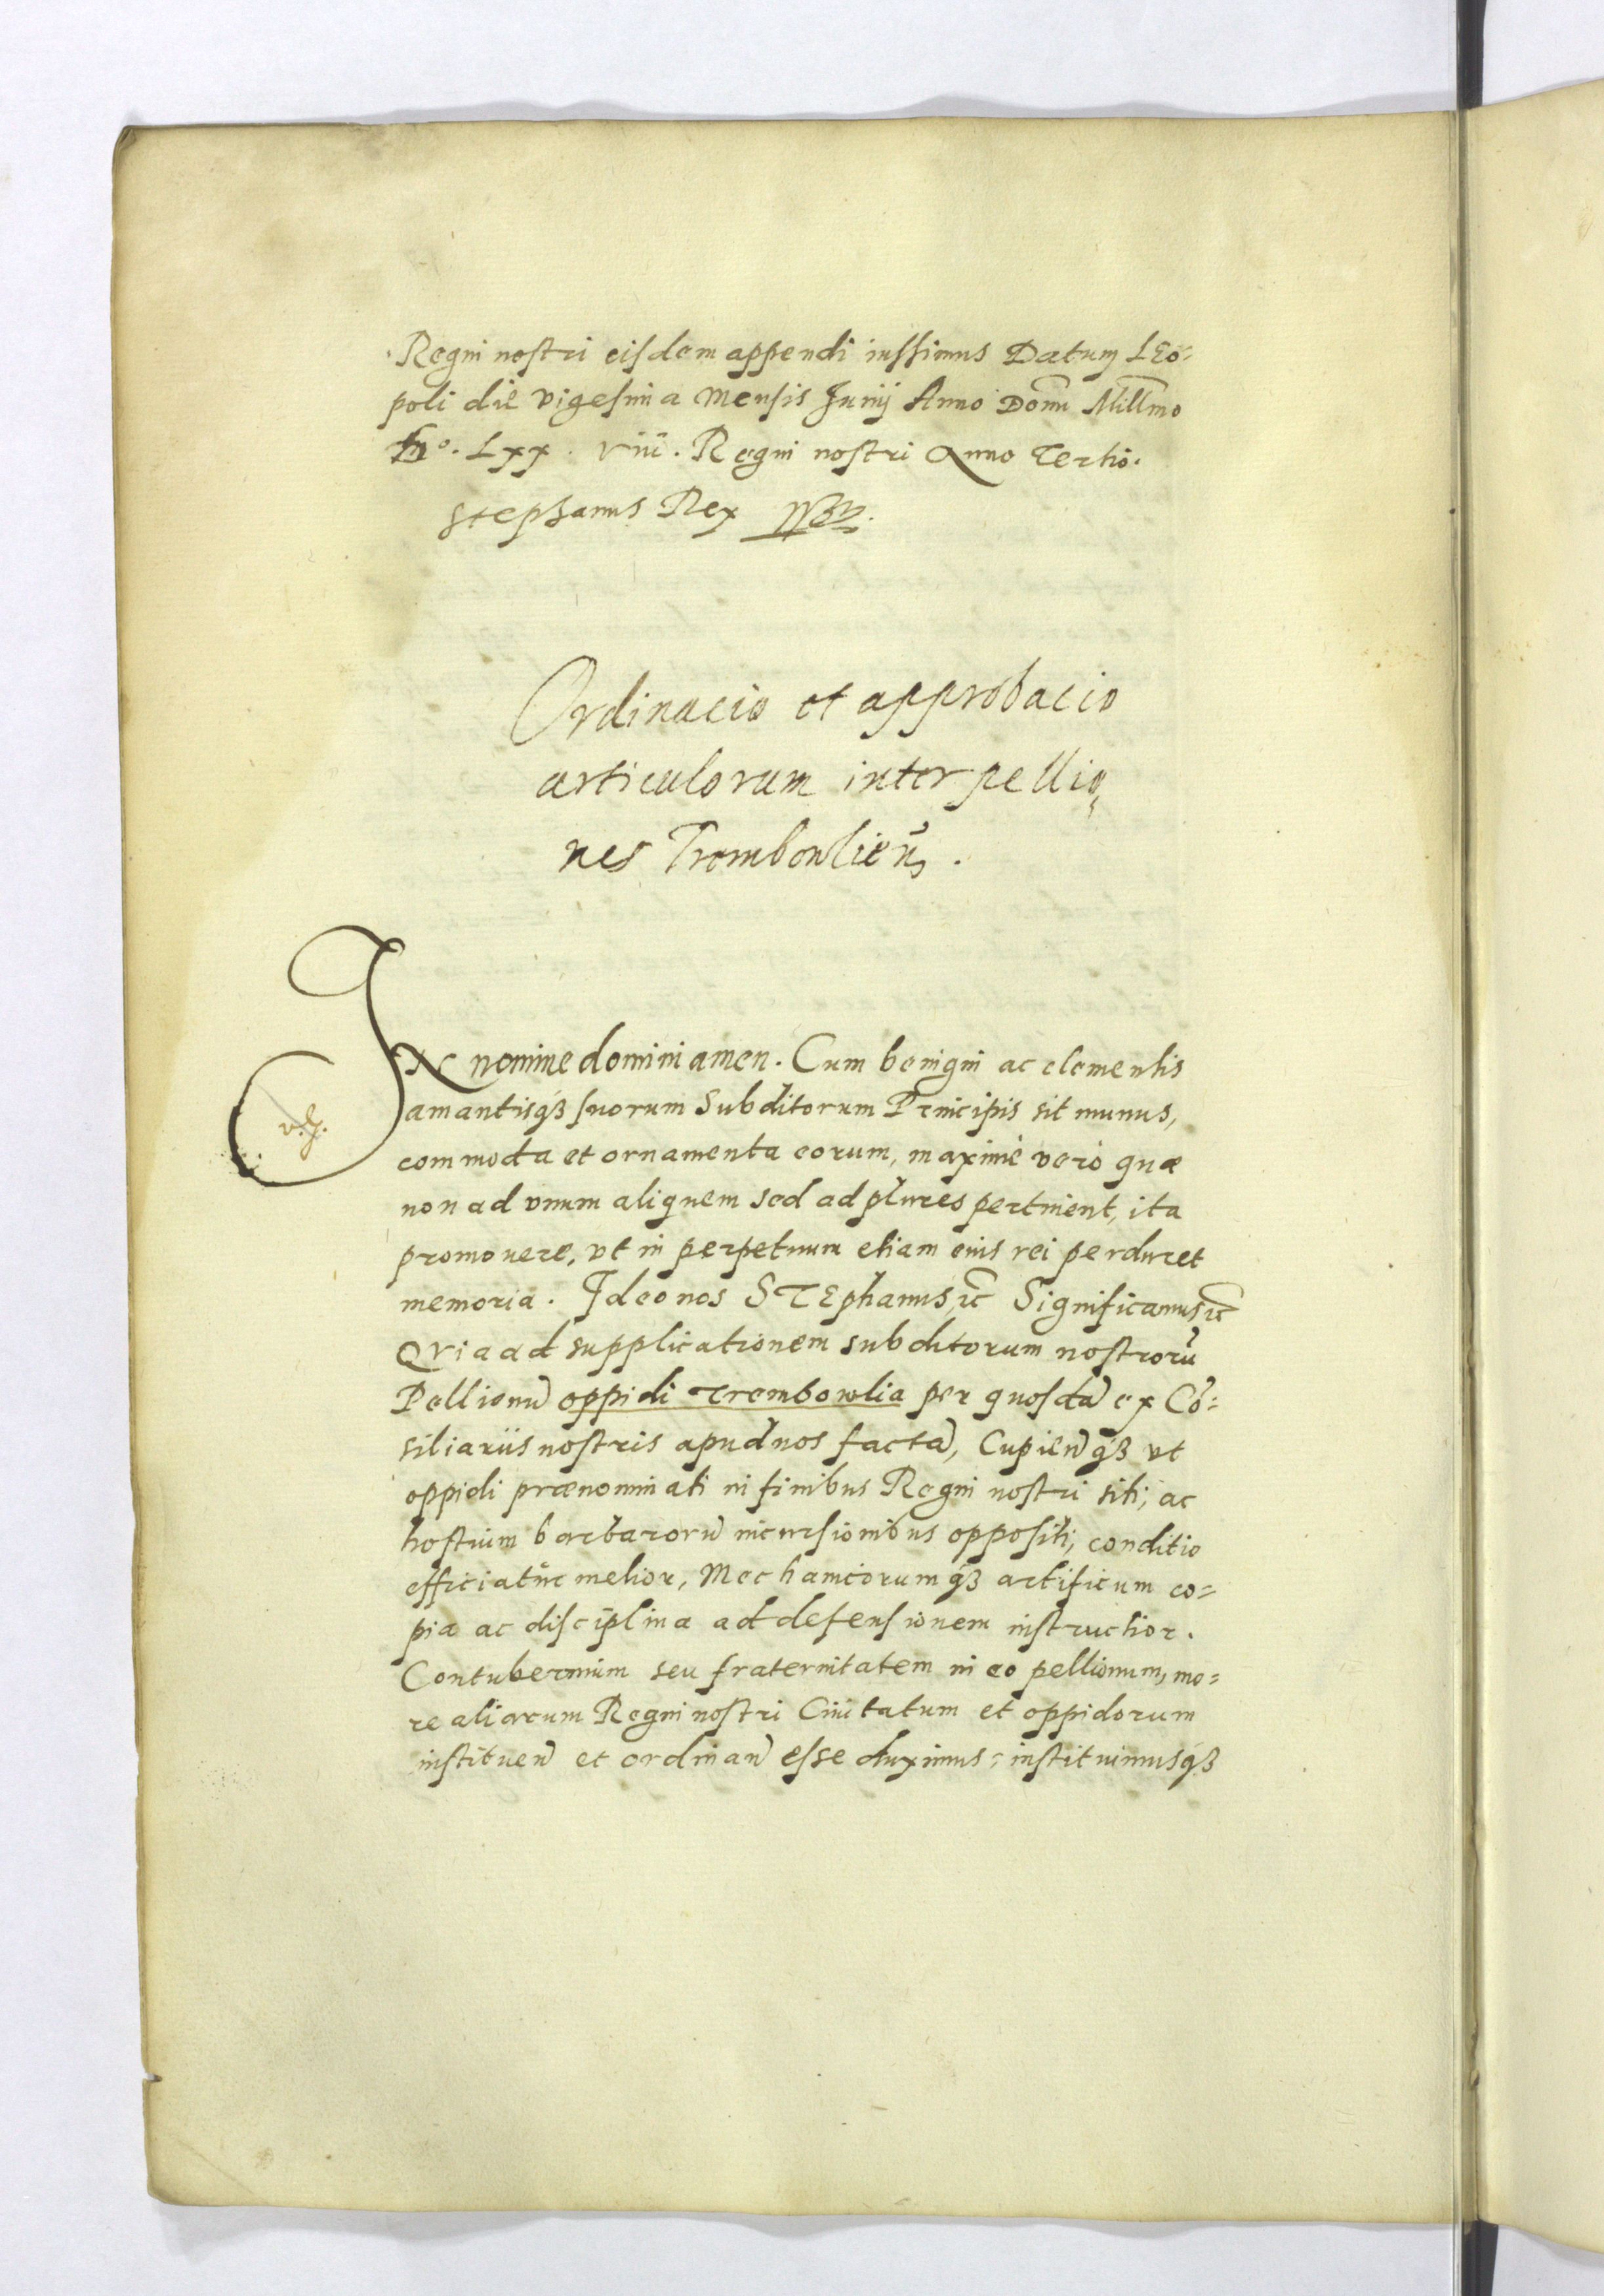 Regni nostri eisdem appendi iussimus Datum LEo=
poli die vigesima Mensis Junij Anno Domi Millmo
Lxx. viii. Regni nostri Anno Tertio.
Stephanus Rex
Ordinacio et approbacio
articulorum inter pellio
nes Trembowlien̄.
IN nomine domini amen. Cum benigni ac clementis
amantisqȝ suorum Subditorum Principis sit munus,
commoda et ornamenta eorum, maximè verò quæ
non ad vnum aliquem sed ad plures pertinent, ita
promouere, vt in perpetuum etiam eius rei perduret
memoria. Ideo nos STEphanus, ic̄ Significamus ic̄
QVia ad supplicationem subditorum nostrorū
Pellionū oppidi Trembowlia per quosdā ex Cō=
siliariis nostris apud nos factā, Cupien̄qȝ vt
oppidi prænominati in finibus Regni nostri siti, ac
hostium barbarorū incursionibus oppositi, conditio
efficiatur melior, Mechanicorumqȝ artificum co=
pia ac disciplina ad defensionem instructior.
Contubernium seu fraternitatem in eo pellionum, mo=
re aliarum Regni nostri Ciuitatum et oppidorum
instituen̄ et ordinan̄ esse duximus: instituimusqȝ